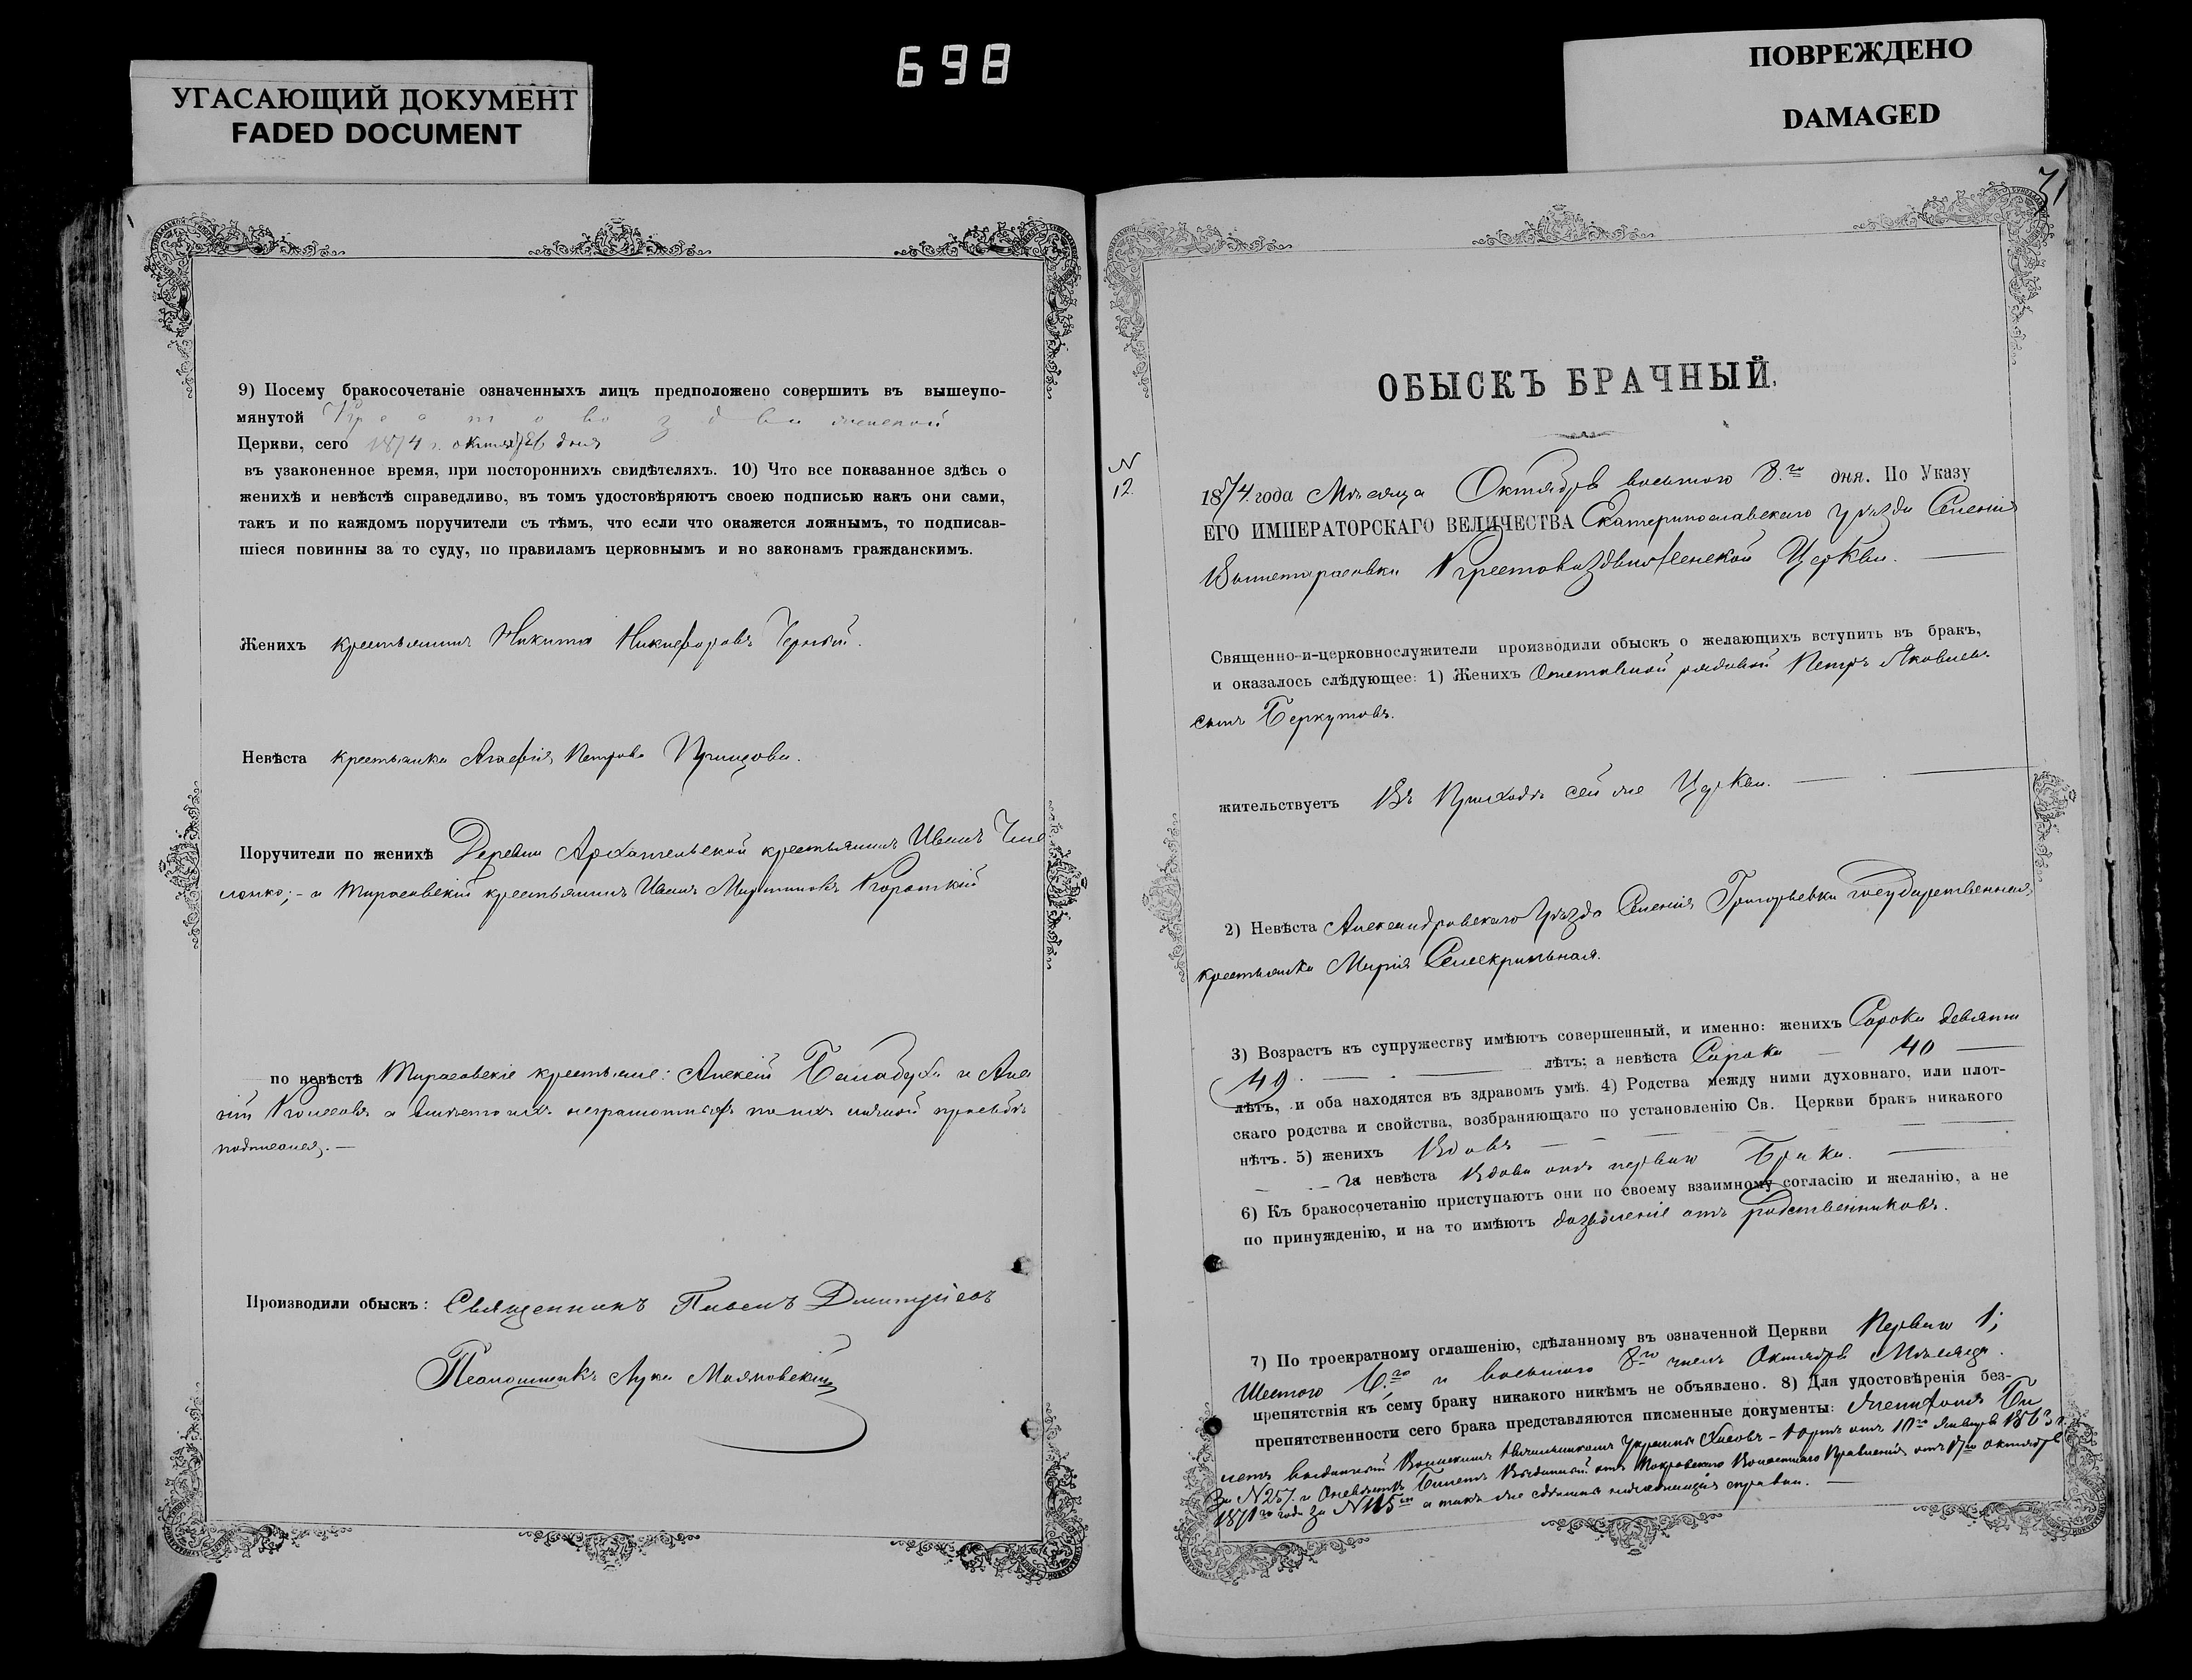 698
УГАСАЮЩИЙ ДОКУМЕНТ
FADED DOCUMENT
ПОВРЕЖДЕНО
DAMAGED
9) Посему бракосочетаніе означенныхъ лицъ предположено совершить въ вышеупо-
мянутой Крестовоздвиженской
Церкви, сего 1874 г. октяб 26 дня
въ узаконенное время, при постороннихъ свидѣтеляхъ. 10) Что все показанное здѣсь о
женихѣ и невѣстѣ справедливо, въ томъ удостовѣряютъ своею подписью какъ они сами,
такъ и по каждомъ поручители съ тѣмъ, что если что окажется ложнымъ, то подписав-
шіеся повинны за то суду, по правиламъ церковнымъ и по законамъ гражданскимъ.
Женихъ крестьянинъ Никита Никифоровъ Черный.
Невѣста крестьянка Агафія Петрова
Поручители по женихѣ Деревни Архангельской крестьянинъ Иванъ
и Тарасовскій крестьянинъ Иванъ Мартиновъ Короткій
по невѣстѣ Тарасовскіе крестьяне: Алексій Балабуха и
а вмѣсто ихъ неграмотныхъ по ихъ личной прозьбѣ
подписался. —
Производили обыскъ: Священникъ Павелъ Дмитріевъ
Псаломщикъ Лука
71
ОБЫСКЪ БРАЧНЫЙ.
N
12.
1874 года Мѣсяца Октября восьмого 8.го дня. По Указу
ЕГО ИМПЕРАТОРСКАГО ВЕЛИЧЕСТВА Екатеринославскаго уѣзда Селенія
Вышетарасовки Крестовоздвиженской Церкви. —
Священно-и-церковнослужители производили обыскъ о желающихъ вступить въ бракъ,
и оказалось слѣдующее: 1) Женихъ Отставной рядовой Петръ Яковлевъ
сынъ Беркутовъ.
жительствуетъ Въ Приходѣ сей же Церкви. —
2) Невѣста Александровскаго Уѣзда Селенія Григорьевки государственная
крестьянка Марія
3) Возрастъ къ супружеству имѣютъ совершенный, и именно: женихъ Сорока девяти
49. — лѣтъ; а невѣста Сорока — 40 —
лѣтъ, и оба находятся въ здравомъ умѣ. 4) Родства между ними духовнаго, или плот-
скаго родства и свойства, возбраняющаго по установленію Св. Церкви бракъ никакого
нѣтъ. 5) женихъ Вдовъ —
а невѣста Вдова отъ перваго Брака. —
6) Къ бракосочетанію приступаютъ они по своему взаимному согласію и желанію, а не
по принужденію, и на то имѣютъ дозволеніе отъ родственниковъ.
7) По троекратному оглашенію, сдѣланному въ означенной Церкви Перваго 1;
Шестого 6.го и восьмого 8го числъ Октября Мѣсяца.
препятствія къ сему браку никакого никѣмъ не объявлено. 8) Для удостовѣренія без-
препятственности сего брака представляются писменные документы: Би
летъ выданный Воинскимъ Начальникомъ Января 1863 г.
За N 257. и Билетъ Выданный отъ Покровскаго Волостнаго Правленія отъ октября
1871го года За N 115 а такъ же